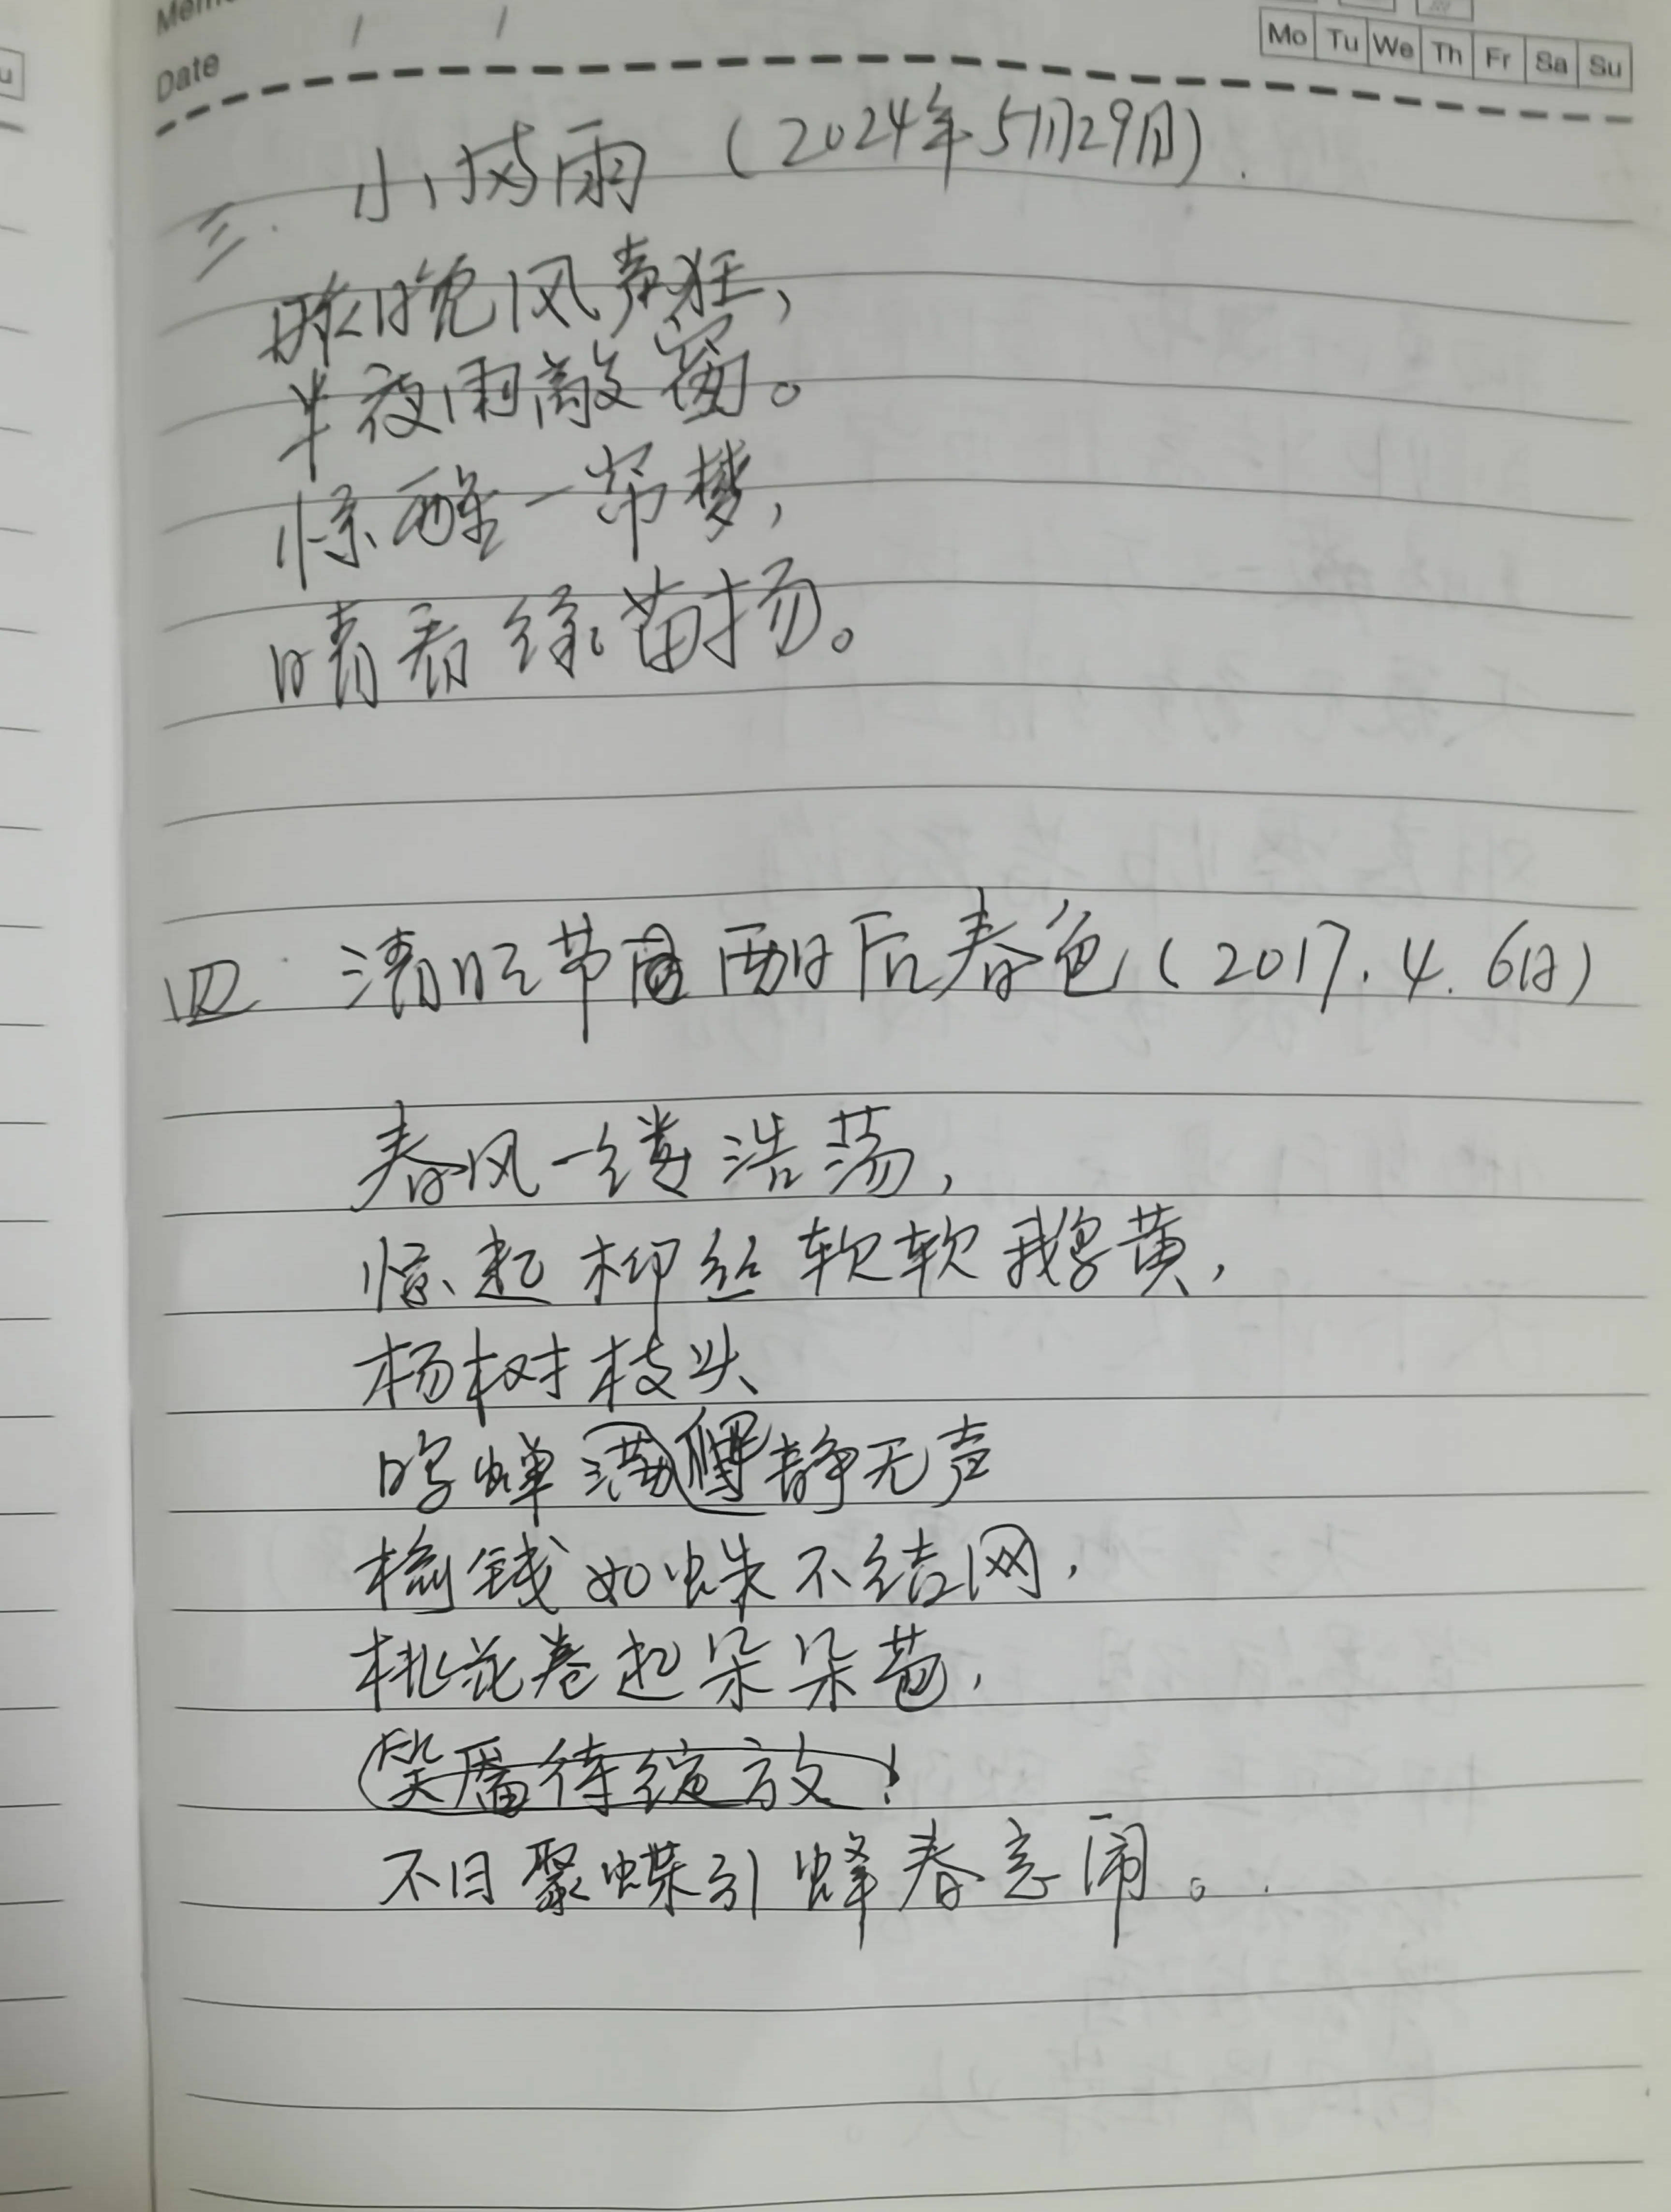 Date / /
Mo Tu We Th Fr Sa Su
三. 小风雨 (2024年5月29日).
昨晚风声狂,
半夜雨敲窗。
惊醒一帘梦,
晴看绿苗扬。
四. 清明节雨后春色(2017.4.6日)
春风一缕浩荡,
惊起柳丝软软鹅黄,
杨树枝头
鸣蝉满 静无声
榆钱如蛛不结网,
桃花卷起朵朵苞,
笑靥待绽放!
不日聚蝶引蜂春意闹。